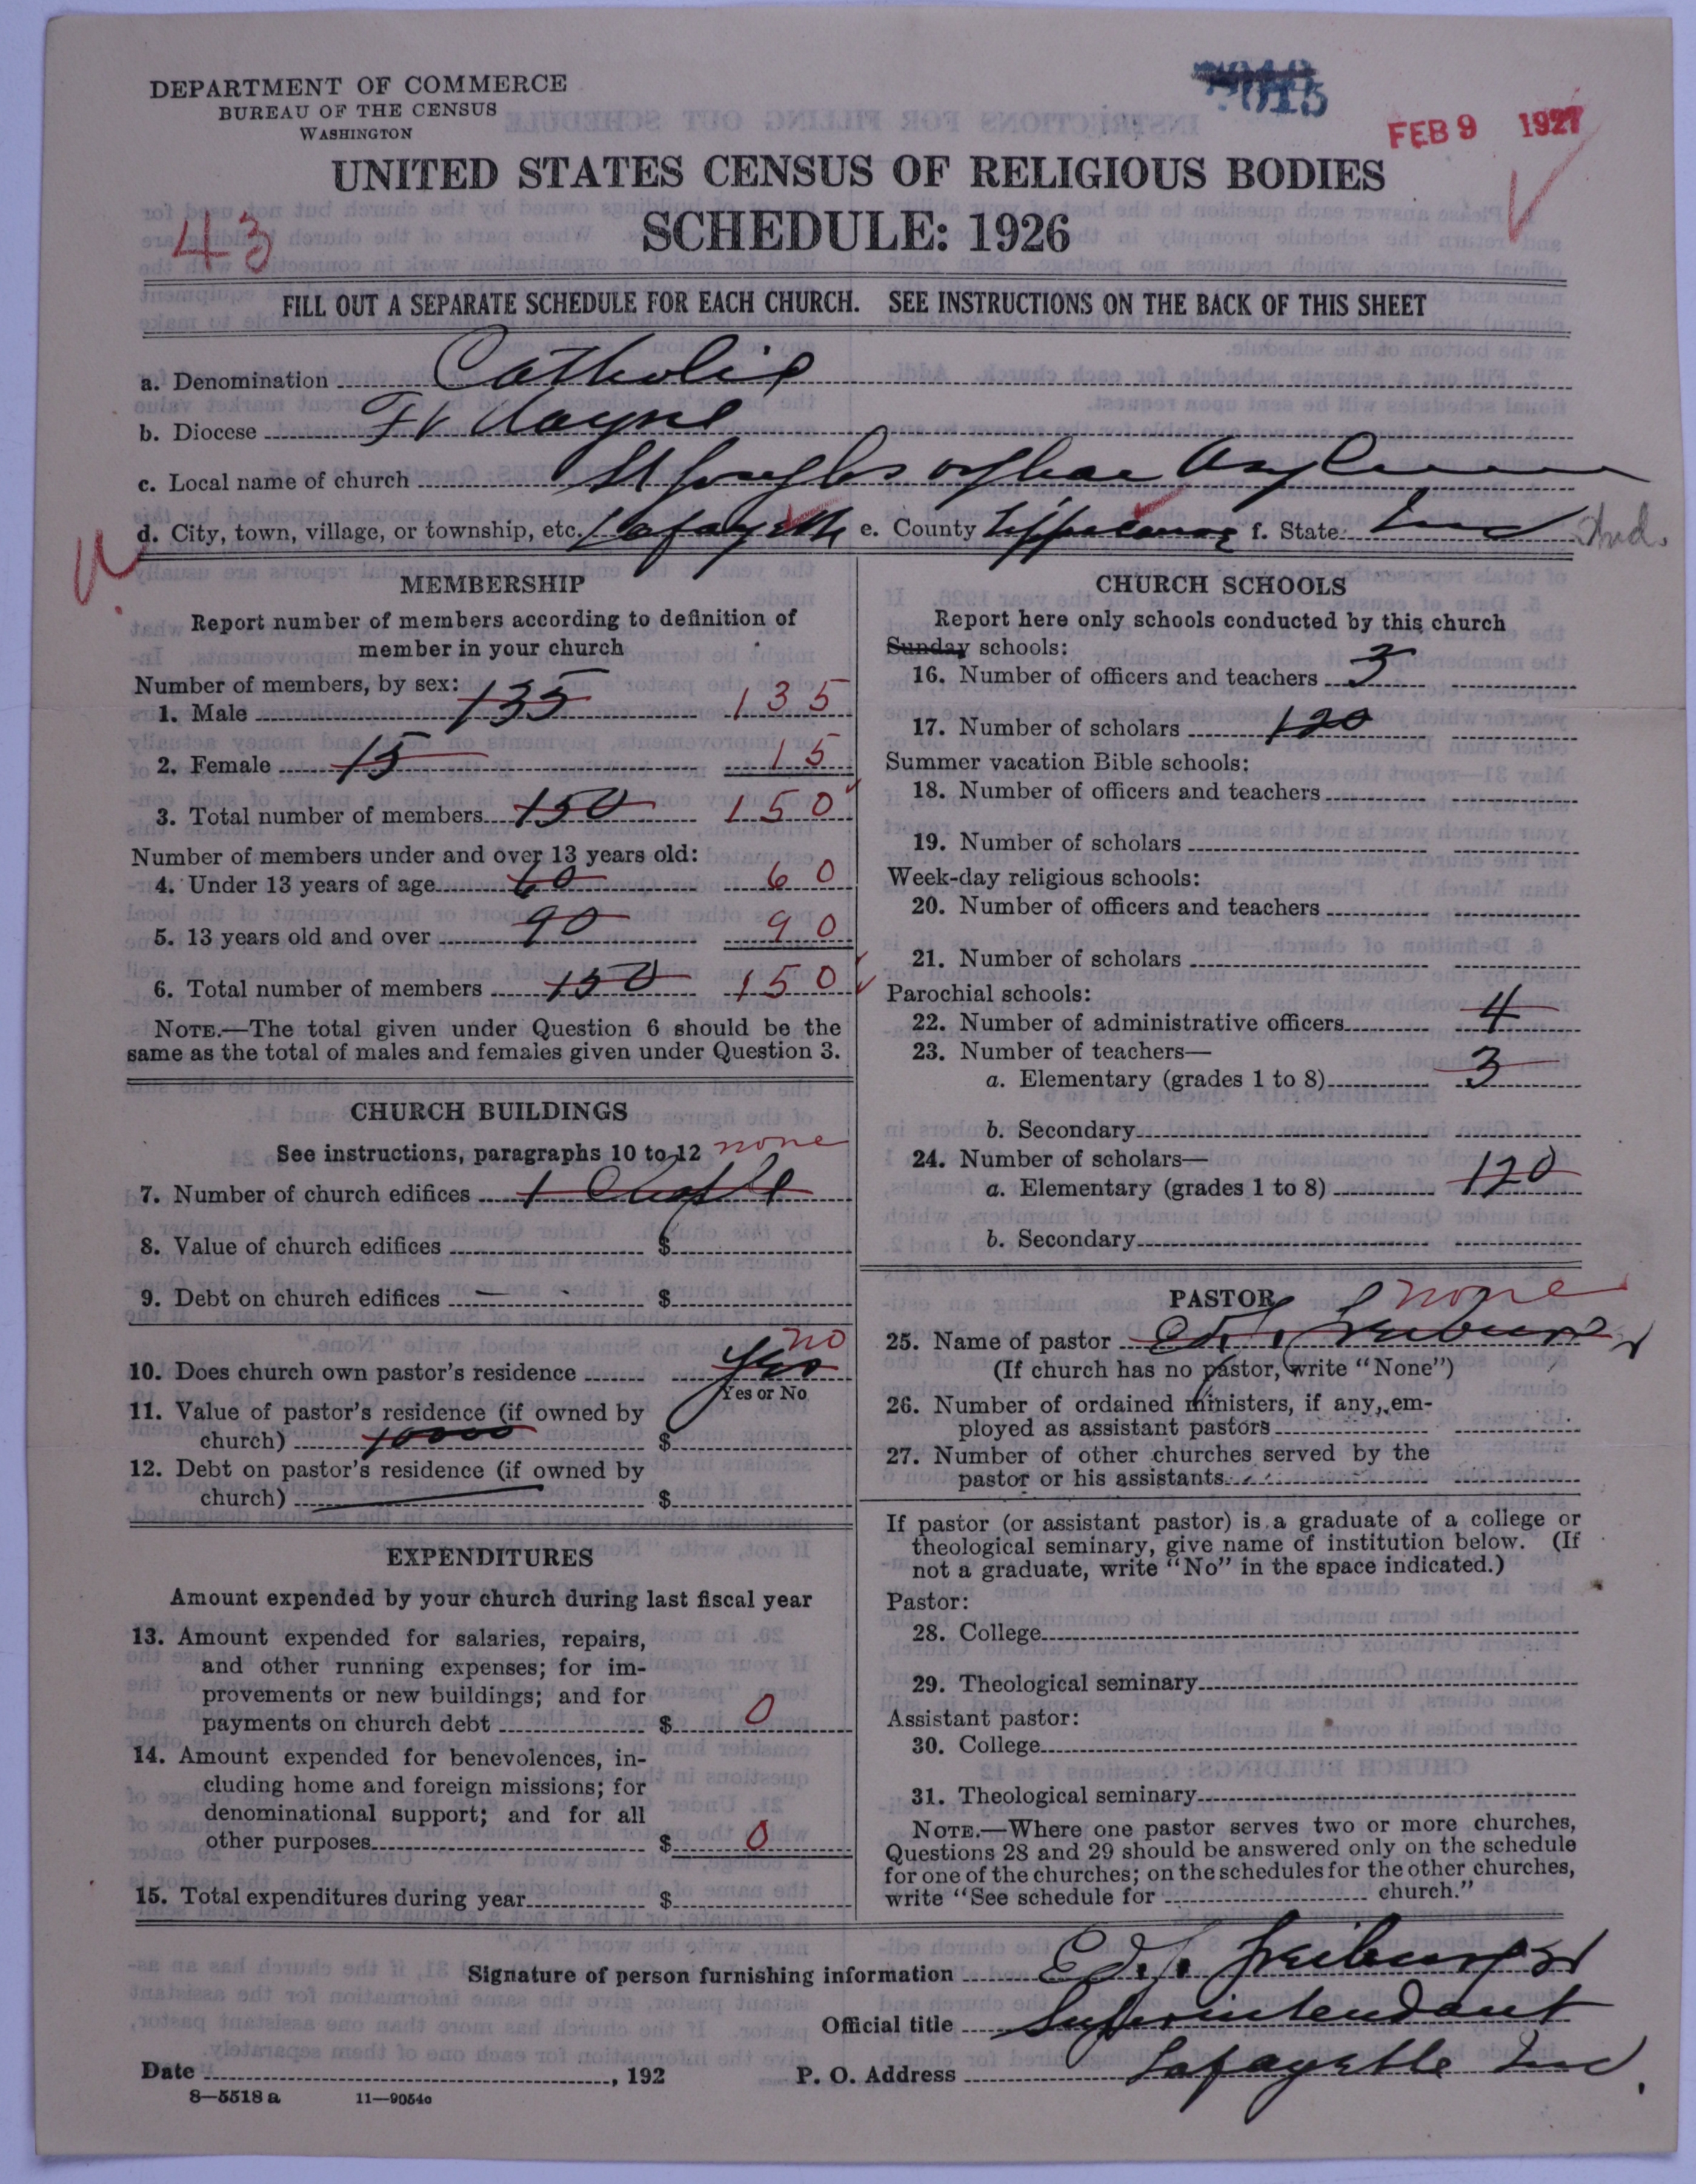 DEPARTMENT OF COMMERCE
BUREAU OF THE CENSUS
WASHINGTON
FEB 9 1927
UNITED STATES CENSUS OF RELIGIOUS BODIES
43
SCHEDULE: 1926
FILL OUT A SEPARATE SCHEDULE FOR EACH CHURCH. SEE INSTRUCTIONS ON THE BACK OF THIS SHEET
a. Denomination Catholic
b. Diocese Ft Wayne
c. Local name of church St Josephs orphan Asylum
d. City, town, village, or township, etc. Lafayette e. County Tippecanoe f. State Ind Ind.
MEMBERSHIP
Report number of members according to definition of
member in your church
Number of members, by sex:
1. Male 135 135
2. Female 15 15
3. Total number of members 150 150
Number of members under and over 13 years old:
4. Under 13 years of age 60 60
5. 13 years old and over 90 90
6. Total number of members 150 150
NOTE.—The total given under Question 6 should be the
same as the total of males and females given under Question 3.
CHURCH BUILDINGS
See instructions, paragraphs 10 to 12 none
7. Number of church edifices 1 Chaple
8. Value of church edifices $
9. Debt on church edifices $
no
10. Does church own pastor's residence Yes
Yes or No
11. Value of pastor's residence (if owned by
church) 10000 $
12. Debt on pastor's residence (if owned by
church) $
EXPENDITURES
Amount expended by your church during last fiscal year
13. Amount expended for salaries, repairs,
and other running expenses; for im-
provements or new buildings; and for
payments on church debt $ 0
14. Amount expended for benevolences, in-
cluding home and foreign missions; for
denominational support; and for all
other purposes $ 0
15. Total expenditures during year $
CHURCH SCHOOLS
Report here only schools conducted by this church
Sunday schools:
16. Number of officers and teachers 3
17. Number of scholars 120
Summer vacation Bible schools:
18. Number of officers and teachers
19. Number of scholars
Week-day religious schools:
20. Number of officers and teachers
21. Number of scholars
Parochial schools:
22. Number of administrative officers 4
23. Number of teachers—
a. Elementary (grades 1 to 8) 3
b. Secondary
24. Number of scholars—
a. Elementary (grades 1 to 8) 120
b. Secondary
PASTOR none
25. Name of pastor
(If church has no pastor, write "None")
26. Number of ordained ministers, if any, em-
ployed as assistant pastors
27. Number of other churches served by the
pastor or his assistants
If pastor (or assistant pastor) is a graduate of a college or
theological seminary, give name of institution below. (If
not a graduate, write "No" in the space indicated.)
Pastor:
28. College
29. Theological seminary
Assistant pastor:
30. College
31. Theological seminary
NOTE.—Where one pastor serves two or more churches,
Questions 28 and 29 should be answered only on the schedule
for one of the churches; on the schedules for the other churches,
write "See schedule for church."
Signature of person furnishing information
Official title Superintendant
Date , 192 P. O. Address Lafayette Ind.
8—5518 a 11—9054o